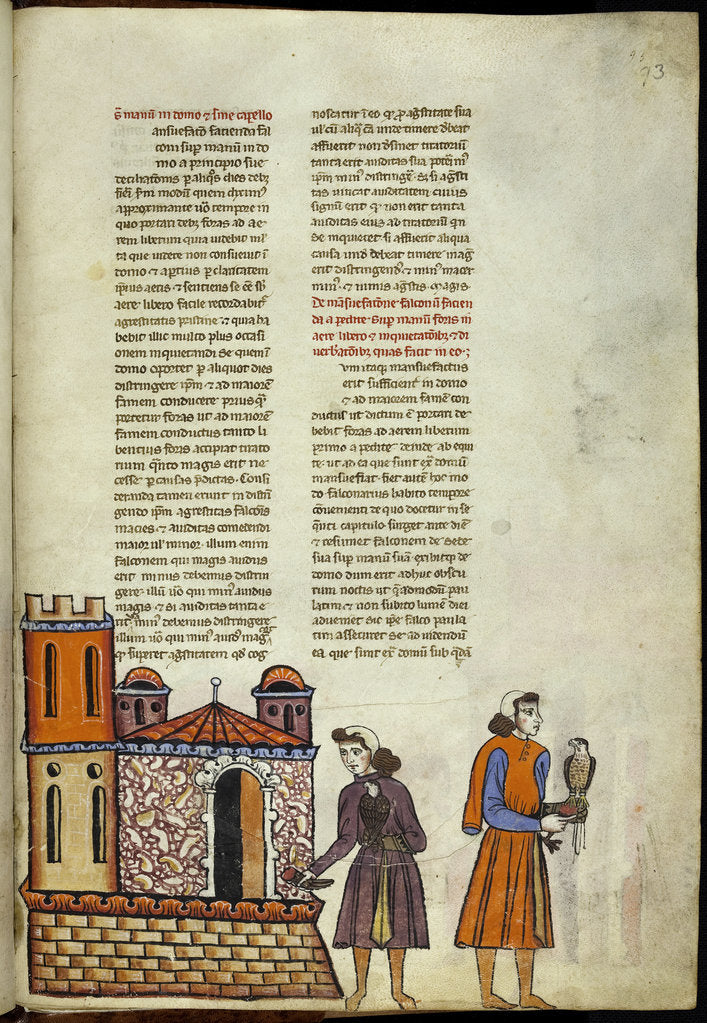 73
s manū in domo & sine capello
ansuefactō facienda fal
coni sup manum in do
mo a principio sue
fieri sm modum quem diximꝰ
approximante uō tempore in
quo portari debꝫ foras ad ae
rem liberum quia uidebit ml
ta que uidere non consueuit ī
domo & apertius p claritatem
ipsius aeris & sentiens se ēē sb
aere libero facile recordabitʳ
agrestitatis pristine & quia ha
bebit illic multo plus occasi
onem inquietandi se quem ī
domo oportet p aliquot dies
distringere ipm & ad maiorē
famem conducere prius qͣ
portetur foras ut ad maiorē
famem conductus tanto li
bentius foras accipiat tirato
rium qͣnto magis erit ne
cesse p causas pdictas. Consi
deranda tamen erunt in distrī
gendo ipm agrestitas falconis
macies & auiditas comedendi
maior ul minor. illum enim
falconem qui magis auidus
erit minus debemus distrin
gere. illū uō qui minꝰ auidus
magis & si auiditas tanta e
rit minꝰ debemus distringere
illum uō qui minꝰ auidꝰ mag
qͣ supet agstitatem qd cog
noscatur
sua
timere debeat
affuerit non tiratorium
tanta erit auiditas sua
ipm minꝰ distringē. Sꝫ si agsti
tas uincat auiditatem cuius
signum erit qͣ non erit tanta
auiditas eius ad tiratoriū qn
se inquietet si affuerit aliqua
causa unde debeat timere mag
erit distringendꝰ & minꝰ macer
minꝰ & nimis agstis magis.
De mansuefactōne falconū facien
da a pedite sup manū foris in
aere libero & inquietatōibꝫ & di
uerbatōibꝫ quas facit in eo.;
um itaqꝫ mansuefactus
erit sufficient in domo
& ad maiorem famē con
ductus ut dictum ē portari de
bebit foras ad aerem liberum
primo a pedite deinde ab equi
te. ut ad ea que sunt ext domū
mansuefiat. fiet autē hoc mo
do falconarius habito tempore
cōuenienti de quo docetur in se
qnti capitulo surget ante diē
& resumet falconem de sede
sua sup manū suā exibitqꝫ de
domo dum erit adhuc obscu
rum noctis ut qͣadmodū pau
latim & non subito lumē diei
adueniet sic ipse falco paula
tim assecuret se ad uidendū
ea que sunt ext domū sub qdā